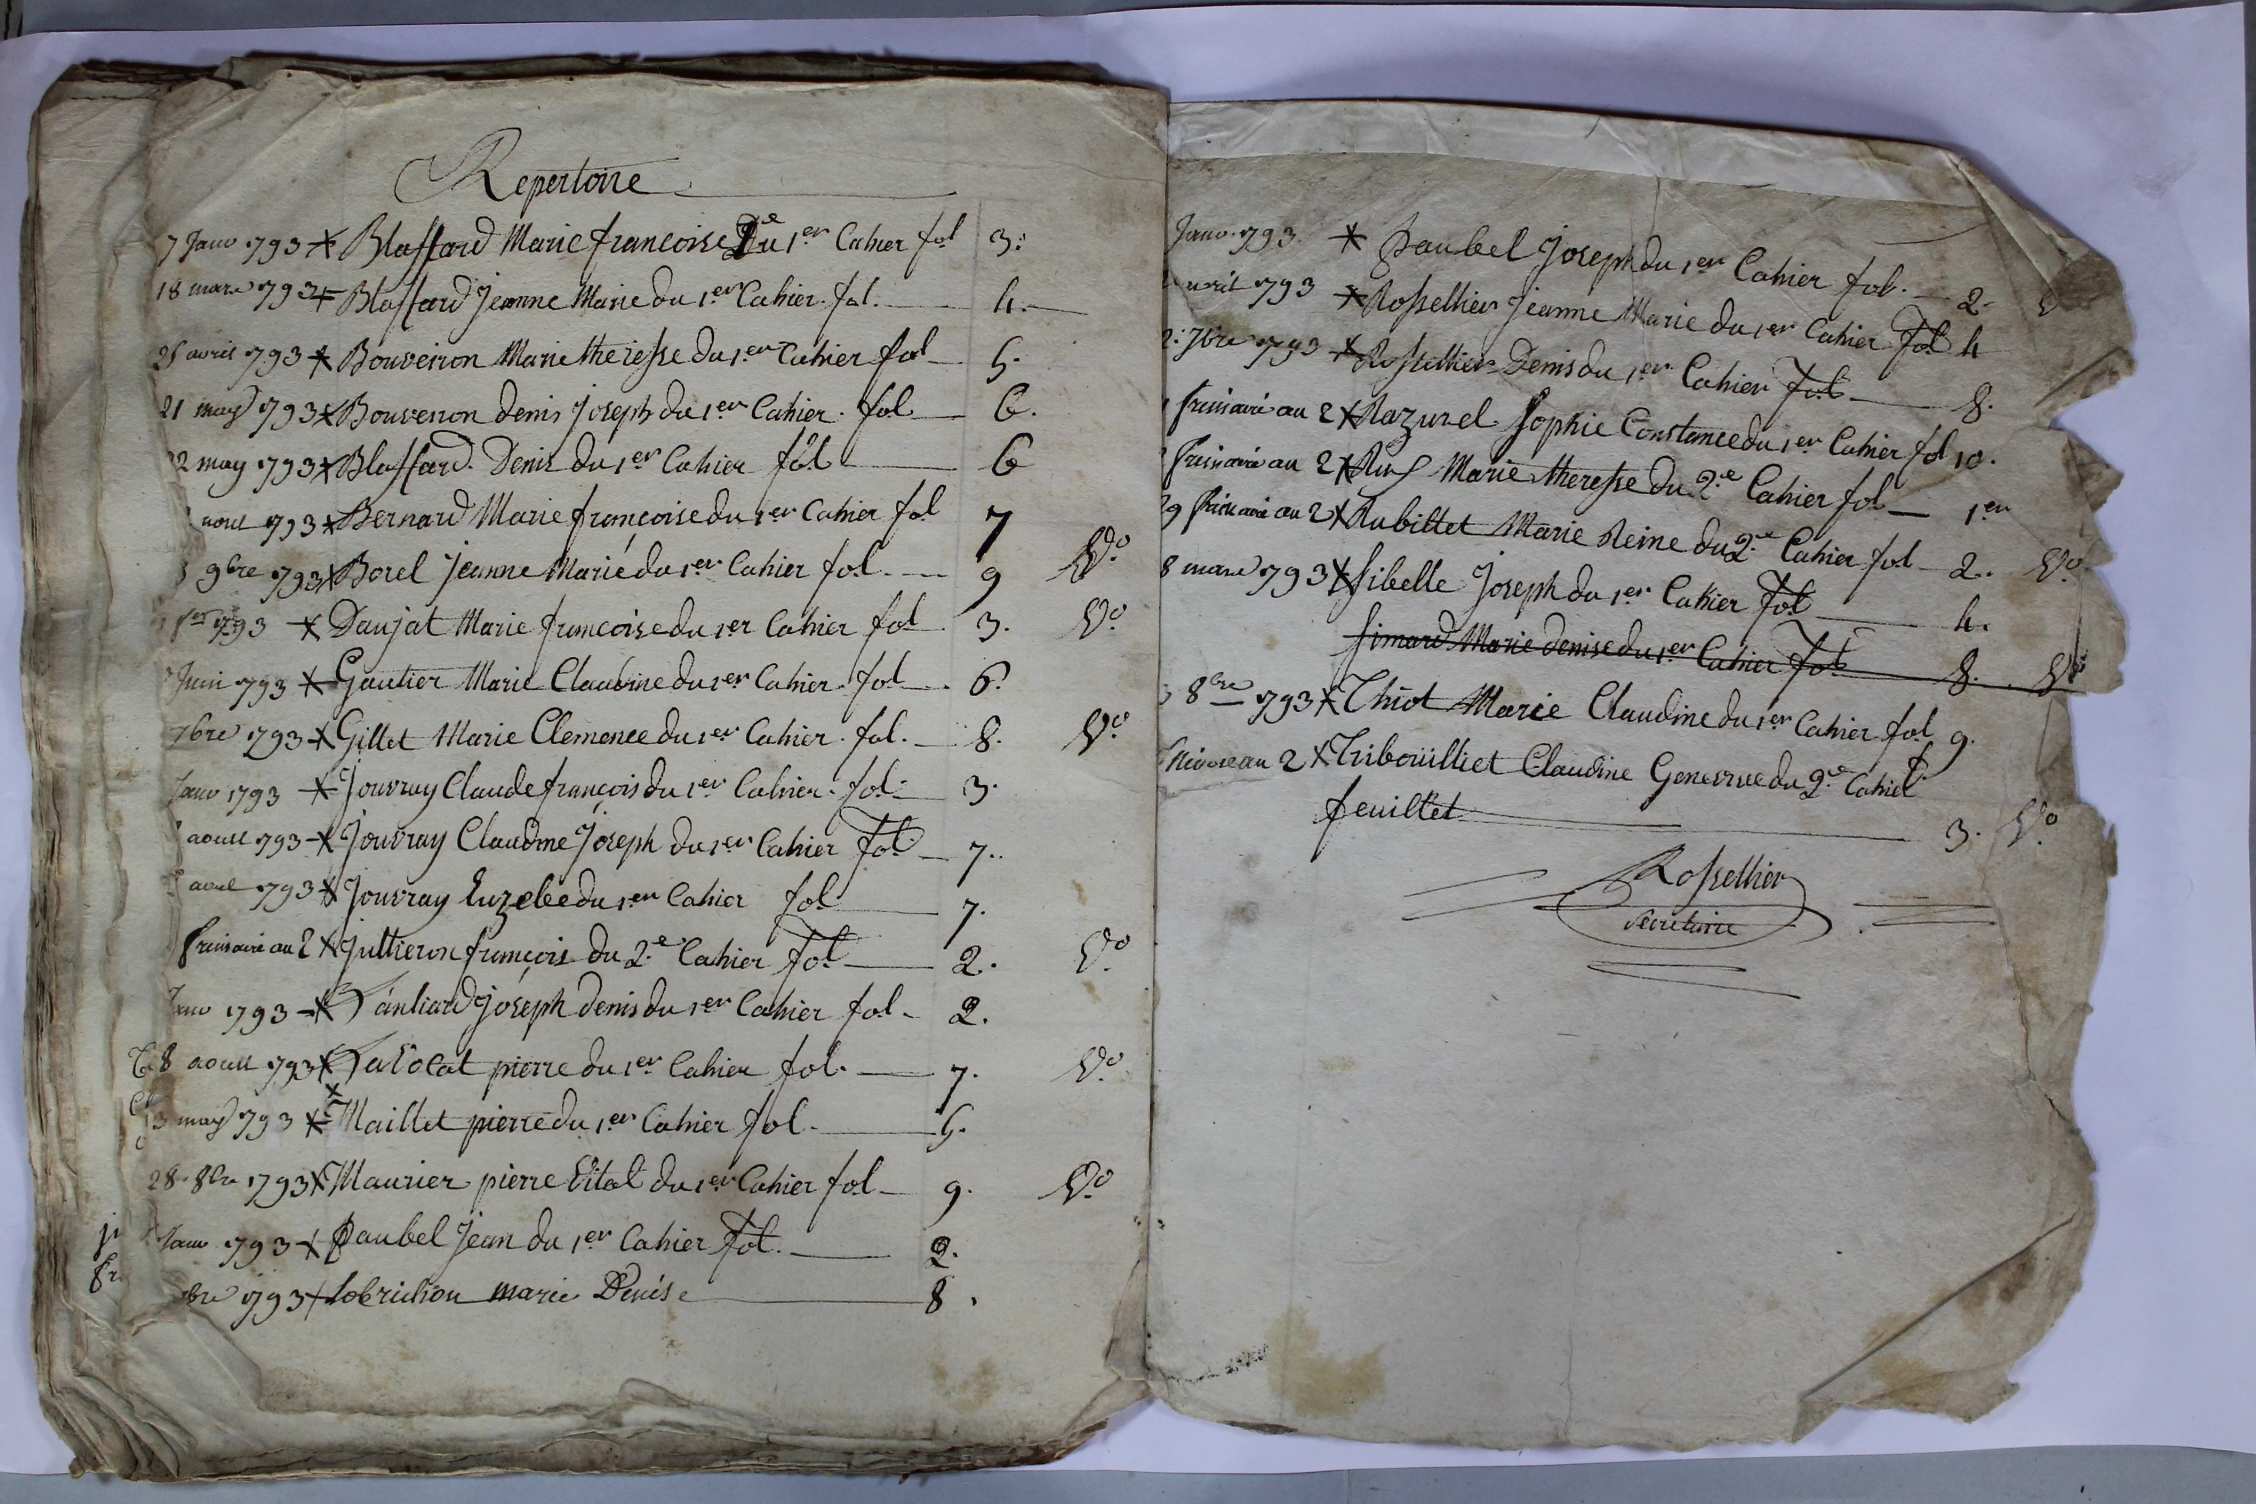 Repertoire
7 Janv 1793 * Blassard Marie francoise Du 1er Cahier fol 3.
18 mars 1793 * Blassard Jeanne Marie du 1er Cahier fol. 4.
25 avril 1793 * Bouveiron Marie theresse du 1er Cahier fol 5.
21 may 1793 * Bouveiron denis joseph du 1er Cahier fol 6.
22 may 1793 * Blassard Denis du 1er Cahier fol 6
aout 1793 * Bernard Marie françoise du 1er Cahier fol 7
9bre 1793 * Borel jeanne Marie du 1er Cahier fol 9 Vo
1793 * Daujat Marie francoise du 1er Cahier fol 3. Vo
Juin 1793 * Gautier Marie Claudine du 1er Cahier fol 6.
7bre 1793 * Gillet Marie Clemence du 1er Cahier fol. 8. Vo
Janv 1793 * Jouvray Claude françois du 1er Cahier fol 3.
aoust 1793 * Jouvray Claudine Joseph du 1er Cahier fol 7.
1793 * Jouvray Euzebe du 1er Cahier fol 7.
frimaire an 2 * Jullieron françois du 2.e Cahier fol 2. Vo
Janv 1793 * joseph denis du 1er Cahier fol 2.
8 aoust 1793 * pierre du 1er Cahier fol. 7. Vo
3 may 1793 * Maillet pierre du 1er Cahier fol. 5.
28 8bre 1793 * Maurier pierre Vital du 1er Cahier fol 9. Vo
Janv 1793 * Paubel Jean du 1er Cahier fol. 2.
bre 1793 * Lobrichon marie Denise 8.
Janv. 1793 * Paubel Joseph du 1er Cahier fol. 2.
avril 1793 * Rossellier Jeanne Marie du 1er Cahier fol 4
7bre 1793 * Rossellier Denis du 1er Cahier fol 8.
frimaire an 2 * Mazurel Sophie Constance du 1er Cahier fol 10.
frimaire an 2 * Marie theresse du 2.e Cahier fol 1er
29 frimaire an 2 * Rubillet Marie Reine du 2.e Cahier fol 2. Vo
8 mars 1793 * Sibelle Joseph du 1er Cahier fol 4.
Simard Marie denise du 1er Cahier fol 8. Vo
8bre 1793 * Thiot Marie Claudine du 1er Cahier fol 9.
Nivose an 2 * Tribouilliet Claudine Genevieve du 2.e Cahier
feuillet 3. Vo
Rossellier
Secretaire